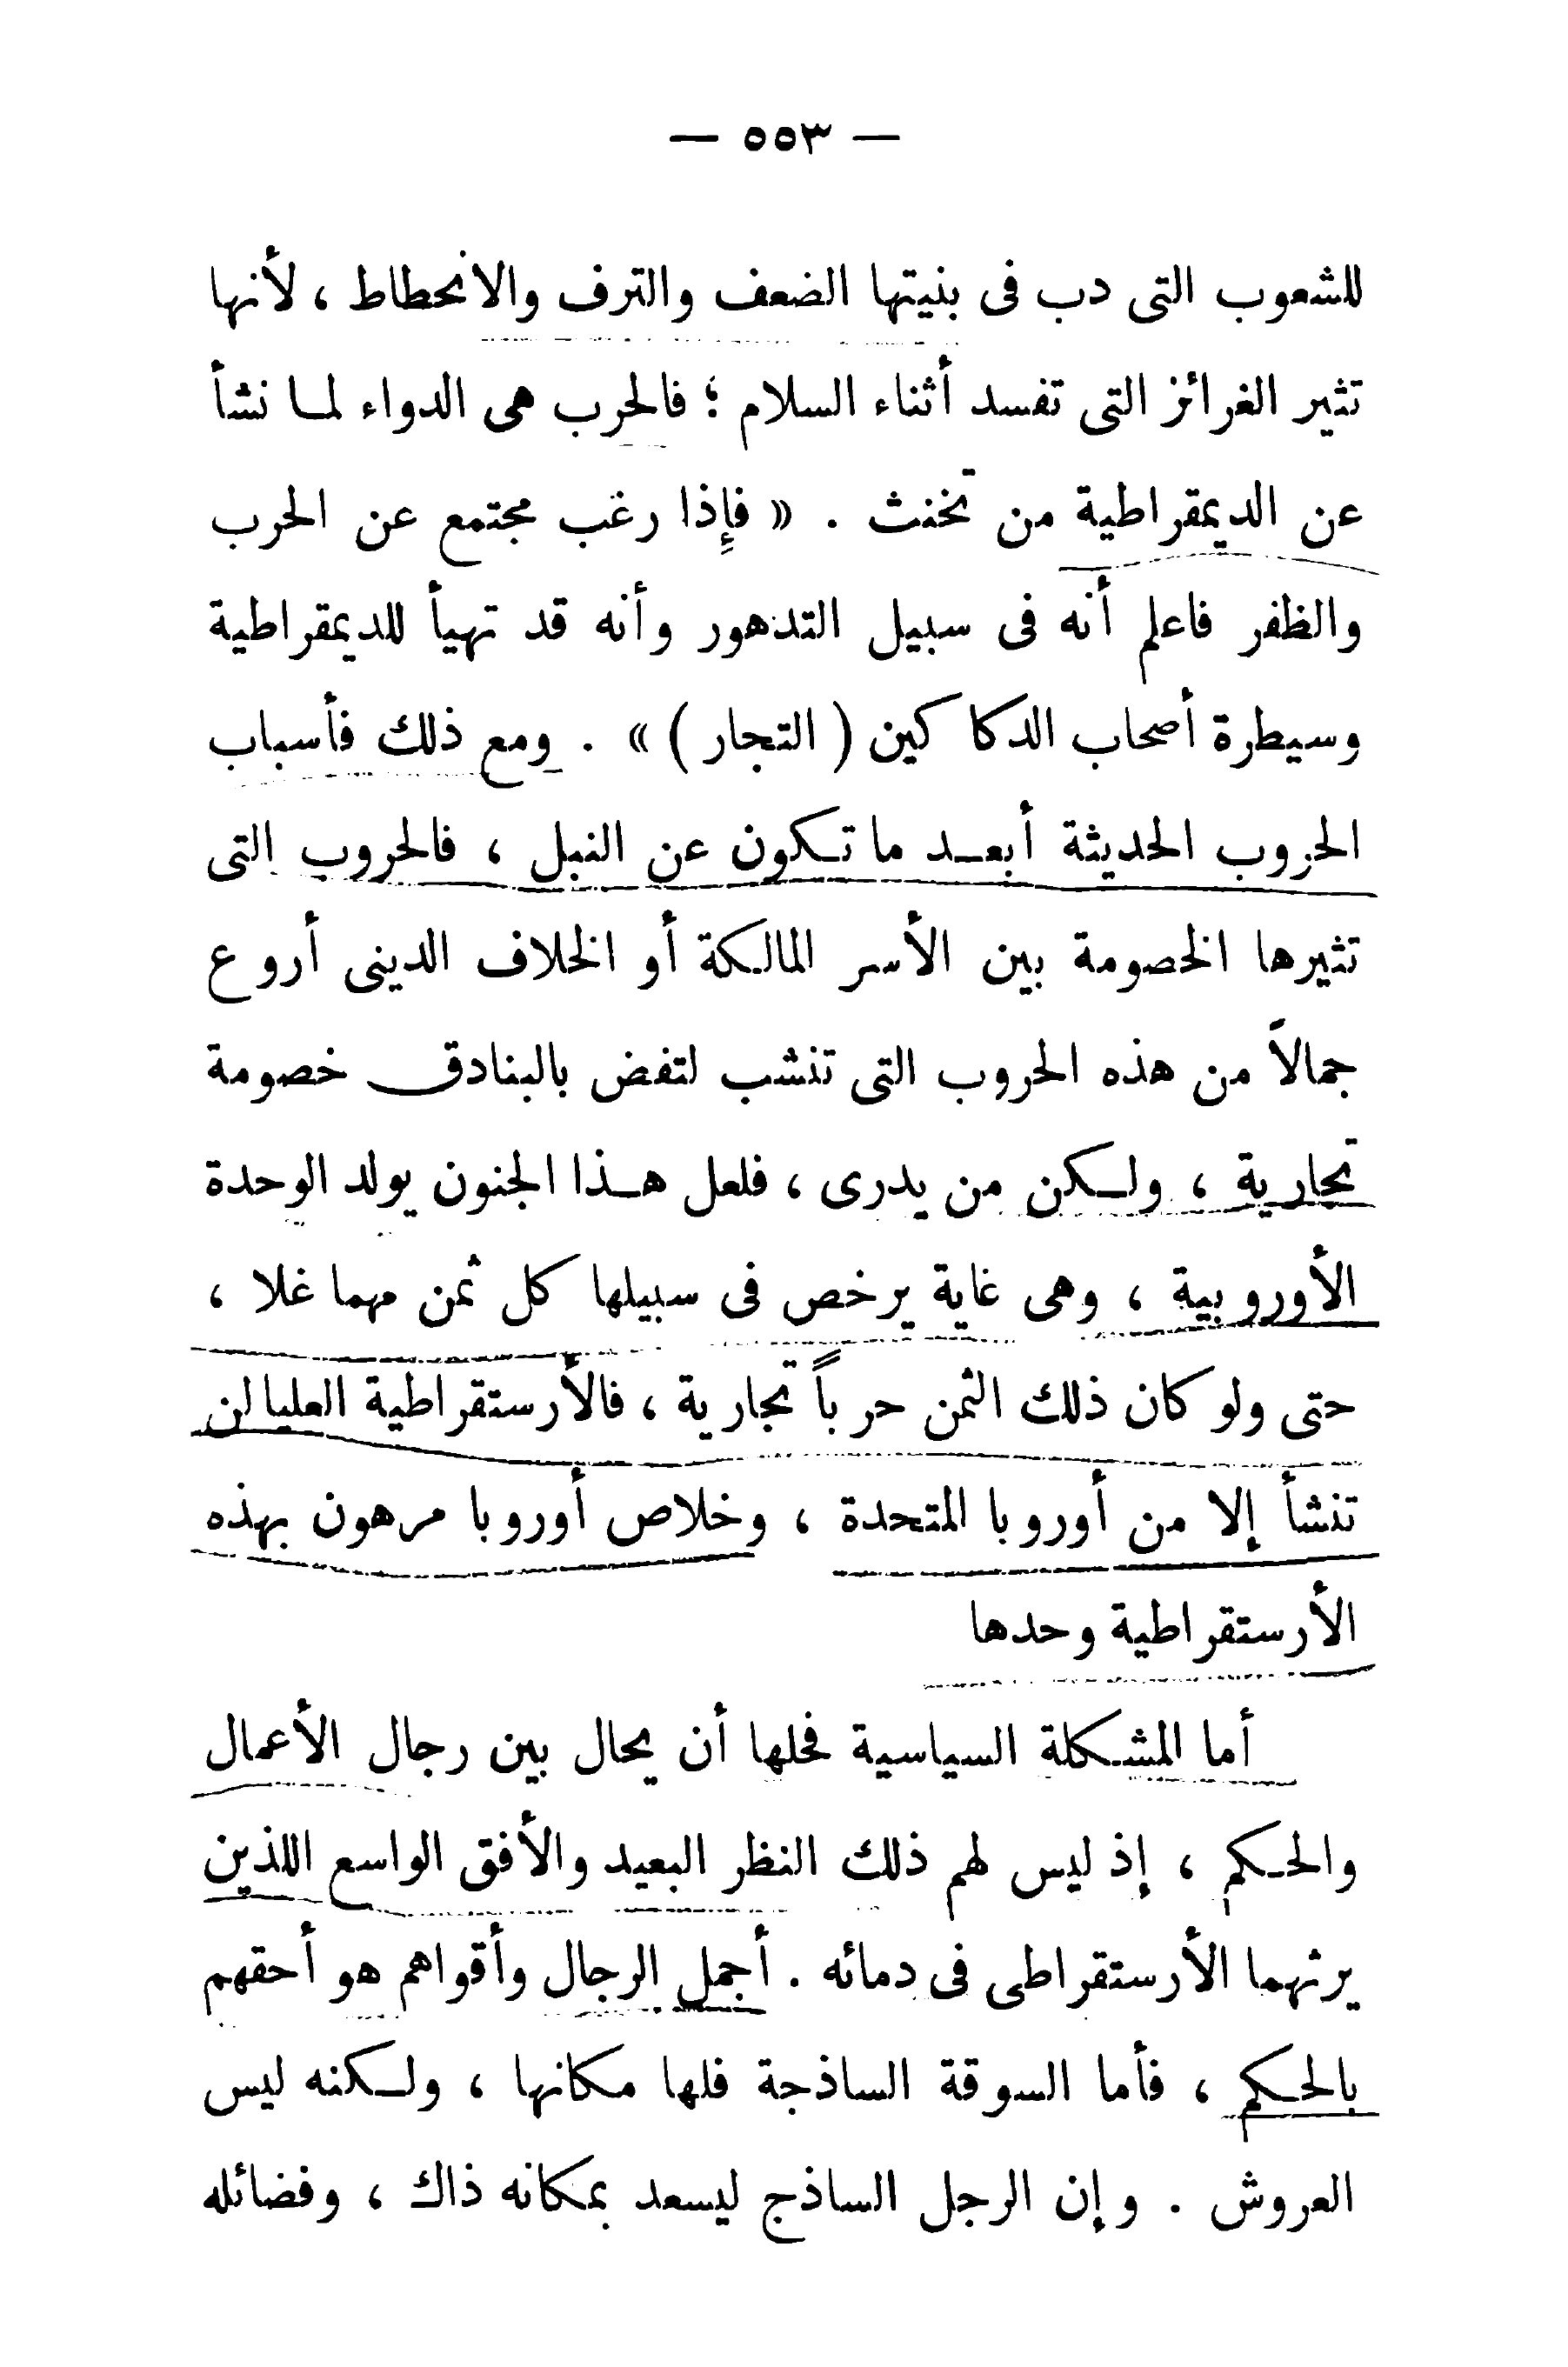 — ٥٥٣ —
للشعوب التى دب فى بنيتها الضعف والترف والانحطاط ، لأنها
تثير الغرائز التى تفسد أثناء السلام ؛ فالحرب هى الدواء لما نشأ
عن الديمقراطية من تخنث . « فإذا رغب مجتمع عن الحرب
والظفر فاعلم أنه فى سبيل التدهور وأنه قد تهيأ للديمقراطية
وسيطرة أصحاب الدكاكين ( التجار ) » . ومع ذلك فأسباب
الحروب الحديثة أبعد ما تكون عن النبل ، فالحروب التى
تثيرها الخصومة بين الأسر المالكة أو الخلاف الدينى أروع
جمالاً من هذه الحروب التى تنشب لتفض بالبنادق خصومة
تجارية ، ولكن من يدرى ، فلعل هذا الجنون يولد الوحدة
الأوروبية ، وهى غاية يرخص فى سبيلها كل ثمن مهما غلا ،
حتى ولو كان ذلك الثمن حرباً تجارية ، فالأرستقراطية العليا لن
تنشأ إلا من أوروبا المتحدة ، وخلاص أوروبا مرهون بهذه
الأرستقراطية وحدها
أما المشكلة السياسية فحلها أن يحال بين رجال الأعمال
والحكم ، إذ ليس لهم ذلك النظر البعيد والأفق الواسع اللذين
يرثهما الأرستقراطى فى دمائه . أجمل الرجال وأقواهم هو أحقهم
بالحكم ، فأما السوقة الساذجة فلها مكانها ، ولكنه ليس
العروش . وإن الرجل الساذج ليسعد بمكانه ذاك ، وفضائله